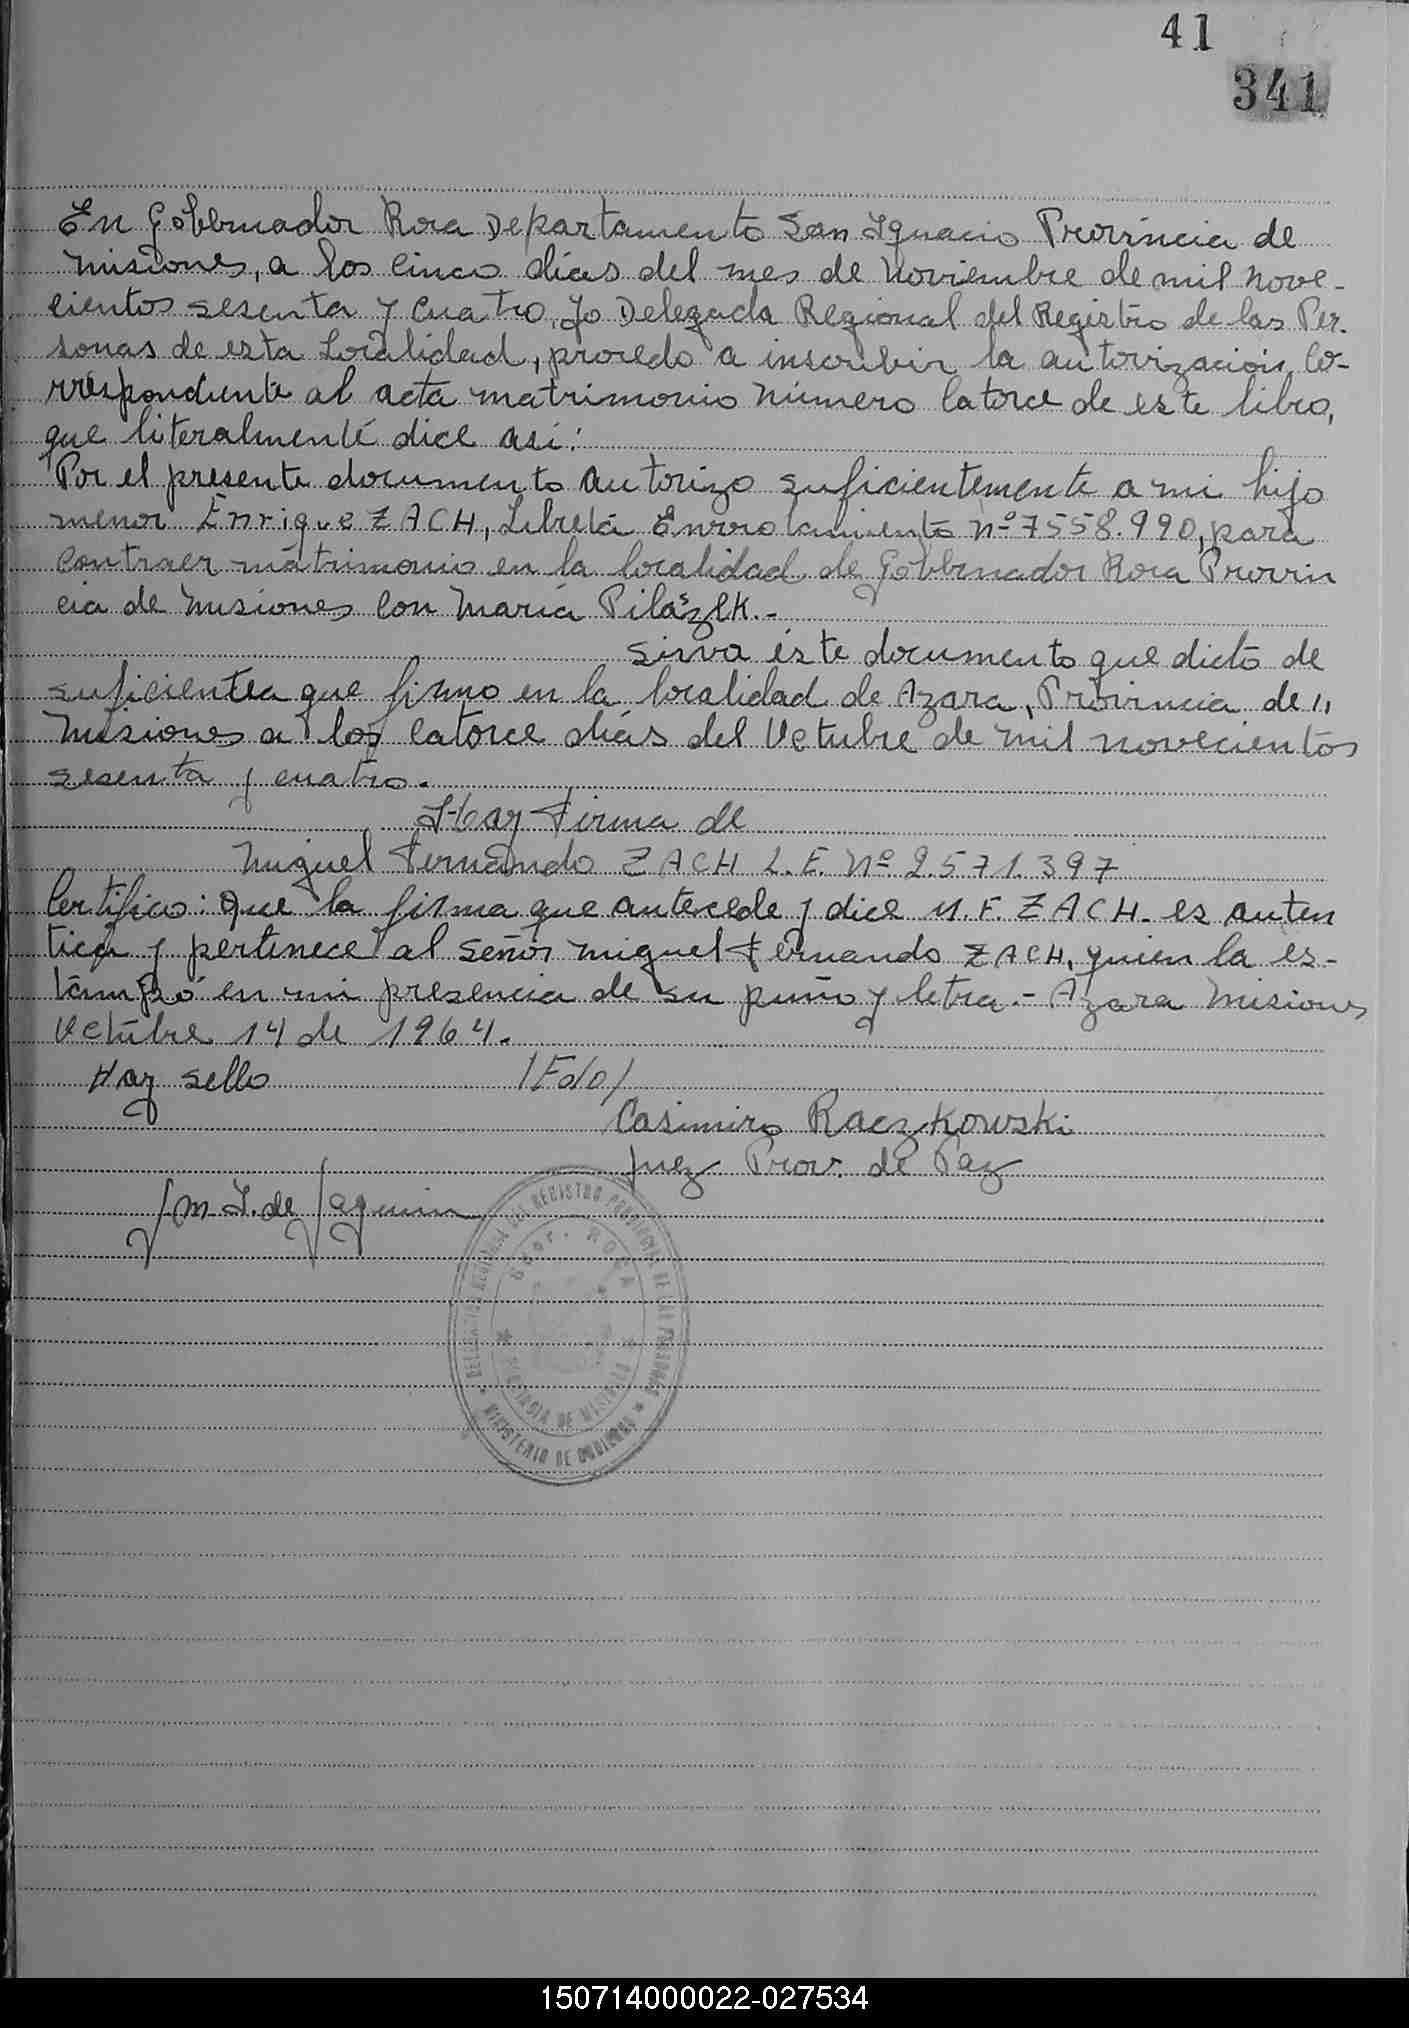 41
341
En Gobernador Roca Departamento San Ignacio Provincia de
Misiones, a los cinco días del mes de Noviembre de mil nove-
cientos sesenta y cuatro, yo Delegada Regional del Registro de las Per-
sonas de esta Localidad, procedo a inscribir la autorización Co-
rrespondiente al acta matrimonio número Catorce de este libro,
que literalmente dice así:
Por el presente documento autorizo suficientemente a mi hijo
menor Enrique ZACH, Libreta Enrolamiento nº 7558.990, para
Contraer matrimonio en la localidad de Gobernador Roca Provin
cia de Misiones Con María Pilaszek.-
Sirva éste documento que dicto de
suficiente a que firmo en la localidad de Azara, Provincia de "
Misiones a los catorce días del Octubre de mil novecientos
sesenta y cuatro.
Hay Firma de
Miguel Fernando ZACH L.E. Nº 2.571.397
Certifico: Que la firma que antecede y dice M.F. ZACH. es auten
tica y pertenece al señor Miguel Fernando ZACH, quien la es-
tampó en mi presencia de su puño y letra.- Azara Misiones
Octubre 14 de 1964.
Hay sello /Fdo/
Casimiro Raczkowski
Juez Prov. de Paz
DELEGACION REGIONAL DEL REGISTRO PROVINCIAL DE LAS PERSONAS
Gdor. ROCA
PROVINCIA DE MISIONES
MINISTERIO DE GOBIERNO
150714000022-027534